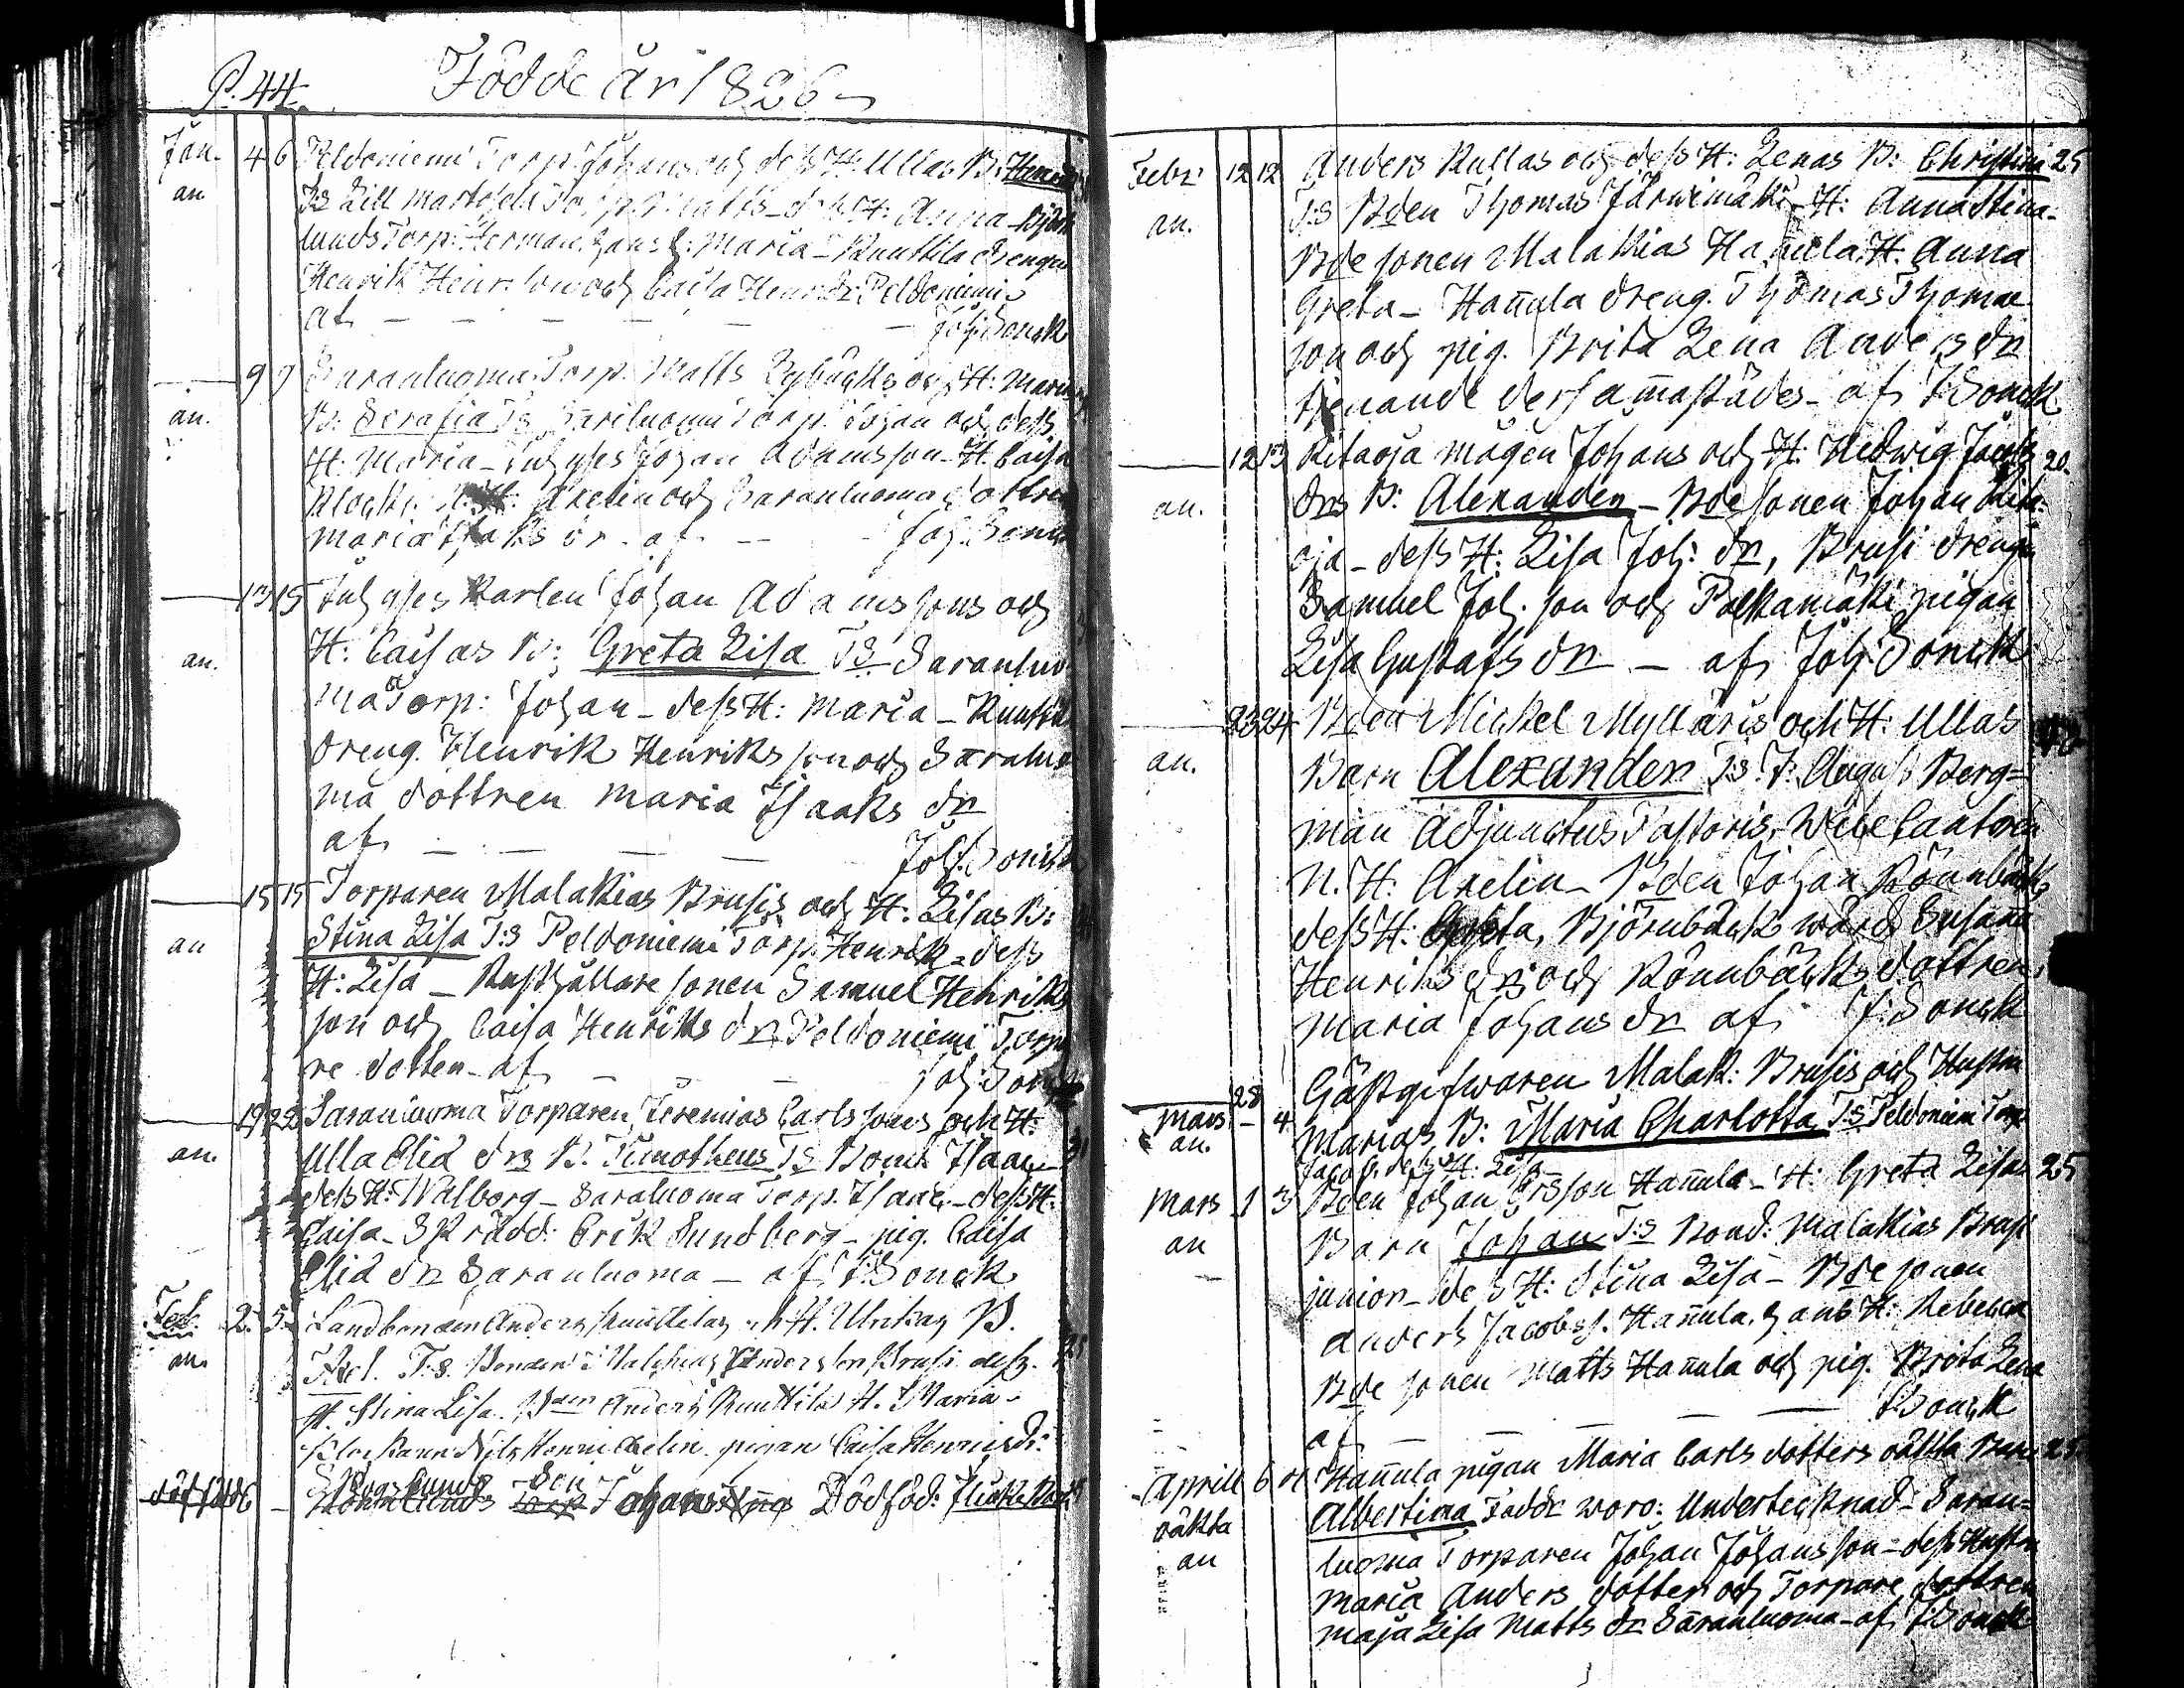 P. 44. Födde år 1826
Jan. 4 6 Peldoniemi Torp. Johans och dess H: Ullas B: Henrik
an. T:s Lill Torp. Matts - d. H: Anna - Björn
lunds Torp: Herman, hans h: Maria - Knuttila drengen
Henrik Henr. son och Caisa Henr. dr Peldoniemi
af — — — — — Joh: Sonck
9 9 Saranluoma Torp. Matts och H: Marias
an. B: Serafia T:s Torp. Johan och dess
H: Maria - Johan Adamsson - H. Caisa
Klock: N: H: Axelin och Saranluoma dottren
Maria Isaks dr. af — Joh. Sonck
13 15 Karlen Johan Adamssons och
an. H: Caisas B: Greta Lisa T:s Saranluo
ma Torp: Johan - dess H: Maria - Knuttila
dreng. Henrik Henriks son och Saraluo
ma dottren Maria Isaaks dr
af — — — — Joh: Sonck
15 15 Torparen Malakias Brusis och H: Lisas B:
an Stina Lisa T:s Peldoniemi Torp. Henrik - dess
H: Lisa - Rusthållare sonen Samuel Henriks
son och Caisa Henriks dr Peldoniemi Torpa
re dotter - af — — Joh: Sonck
19 22 Saranluoma Torparen Jeremias Carls sons och H:
an. Ulla Elia drs B. Timotheus T:s Bond. Isaac
dess H: Walborg - Saraluoma Torp. Isaac - dess H:
Caisa - Skrädd: Erik Sundberg - pig. Caisa
Elia dr Saranluoma - af J: Sonck
Feb. 2. 5. Anders Knuttilas och H. Ulrikas B.
an. Axel. T:s. Bonden Malachias Andersson Brusi dess
H. Stina Lisa. Anders Knuttila H. Maria -
Klockaren Nils Henric Axelin pigan Caisa Henricsdr:
Skoglunds Son
Johans Dödföd: flicke Barn
Febr 12 12 Anders Kullas och dess H: Lenas B: Christina 25
an. T:s Bden Thomas Järwimäki - H: Anna Stina -
Bde sonen Malakias Hannula H: Anna
Greta - Hannula dreng. Thomas Thomae
son och pig. Brita Lena Anders dr
tjenande dersammastädes - af J: Sonck
12 13 Ritaoja mågen Johans och H: Hedwig Jacobs 20.
an. drs B: Alexander - Bde sonen Johan Rita
oja - dess H: Lisa Joh: dr, Brusi drengen
Samuel Joh. son och pigan
Lisa Gustafs dr — af Joh. Sonck
23 24 Bden Mickel Myllaris och H: Ullas
an. Barn Alexander T:s: J: August Berg=
man Adjunctus Pastoris, Wice Cantoren
N. H. Axelin - Bden Johan Rönnbäck,
dess H: Greta, Björnbäck wärd. Susanna
Henriks dr och Rönnbäcks dottren
Maria Johans dr af J: Sonck
28 Gästgifwaren Malak: Brusis och Hustru
Mars - 4 Marias B: Maria Charlotta T:s Peldoniemi Torp
an. Jacob, dess H: Lisa
Mars 1 3 Bden Johan Ersson Hannula - H: Greta Lisas 25
an Barn Johan T:s Bond: Malakias Brusi
junior - dess H: Stina Lisa - Bde sonen
Anders Jacobss. Hannula, hans H: Rebecca
Bde sonen Matts Hannula och pig. Brita Lena
af — — — — J: Sonck
Aprill 6 Hannula pigan Maria Carls dotters oäkta Barn 25
oäkta Albertina Faddr woro: Undertecknad - Saran=
an luoma Torparen Johan Johansson - dess Hustru
Maria Anders dotter och Torpare dottren
Maja Lisa Matts dr Saranluoma - af J: Sonck